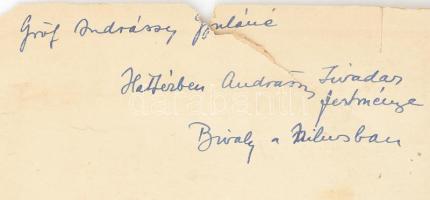 Gróf Andrássy Gyuláné
Háttérben Andrássy Tivadar
festménye
Bivaly a Nilusban